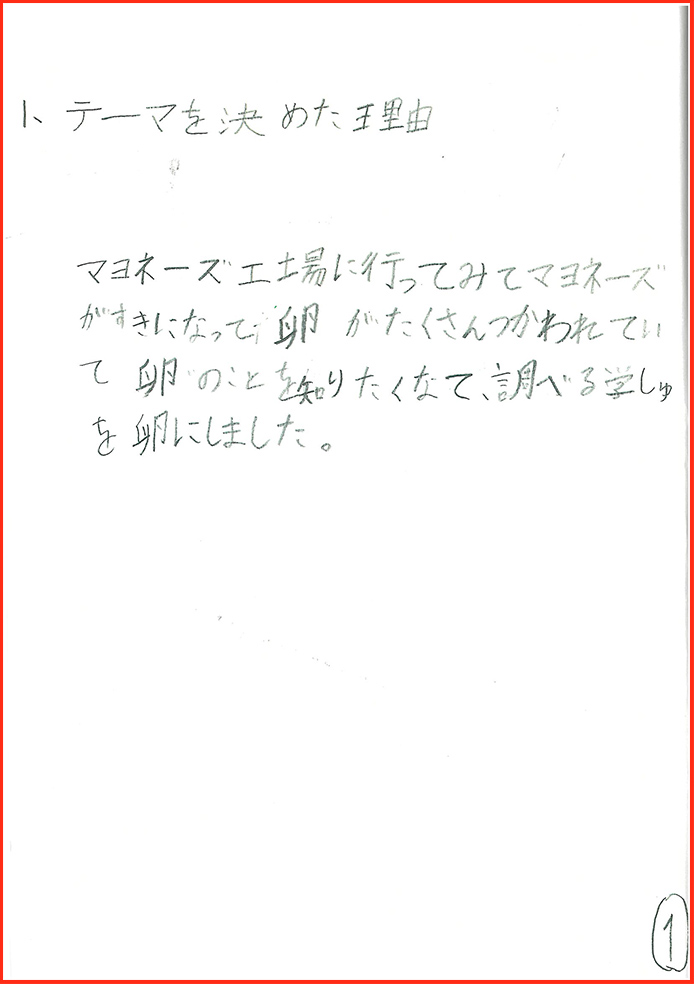 1、テーマを決めた理由
マヨネーズ工場に行ってみてマヨネーズ
がすきになって、卵がたくさんつかわれてい
て卵のことを知りたくなて、調べる学しゅ
を卵にしました。
1